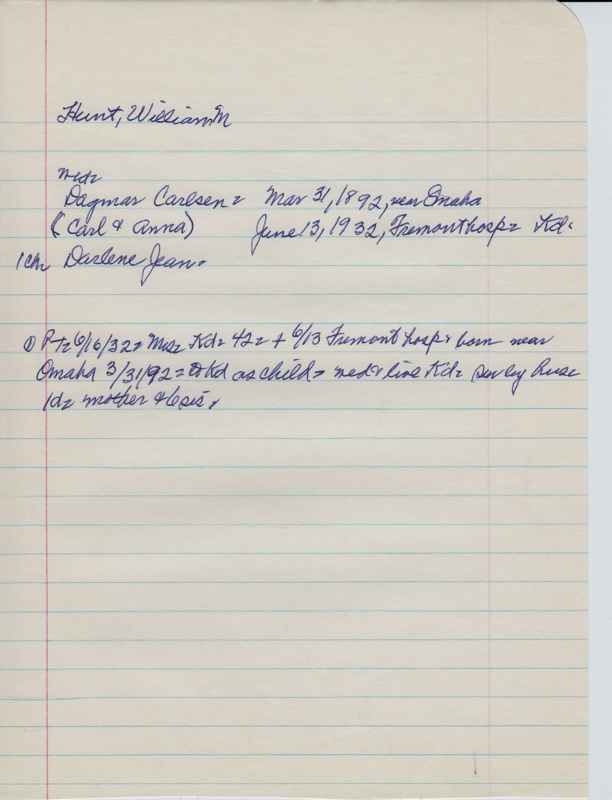 Hunt, William M
med=
Dagmar Carlsen= Mar 31, 1892, near Omaha
(Carl & Anna) June 13, 1932, Fremont hosp= Kd=
1 ch= Darlene Jean=
① PT= 6/16/32= Mrs= Kd= 42= + 6/13 Fremont hosp= born near
Omaha 3/31/92= to Kd as child= med= live Kd= sur by husc
1d= mother & 6 sis=